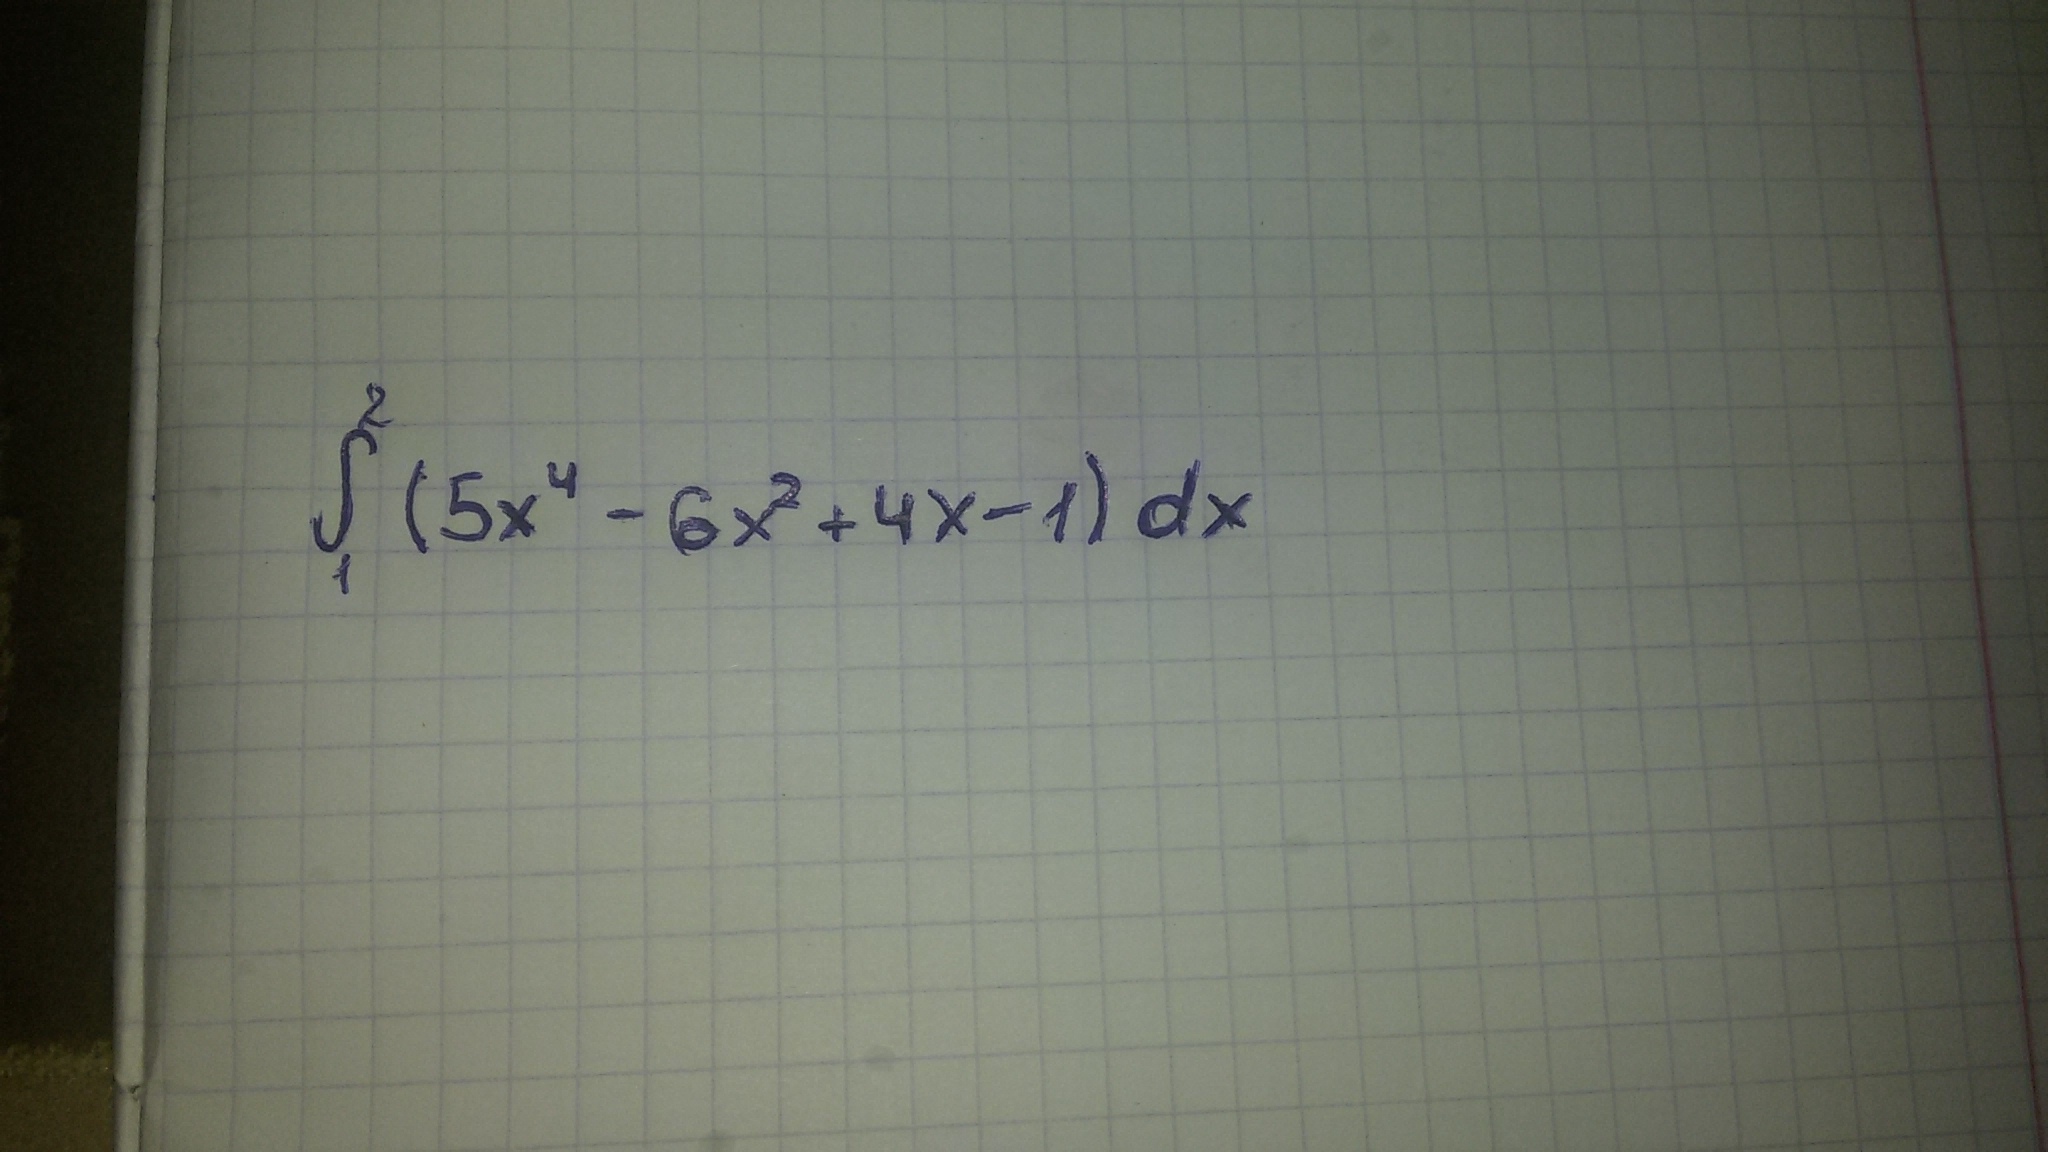 ∫₁² (5x⁴ - 6x² + 4x - 1) dx